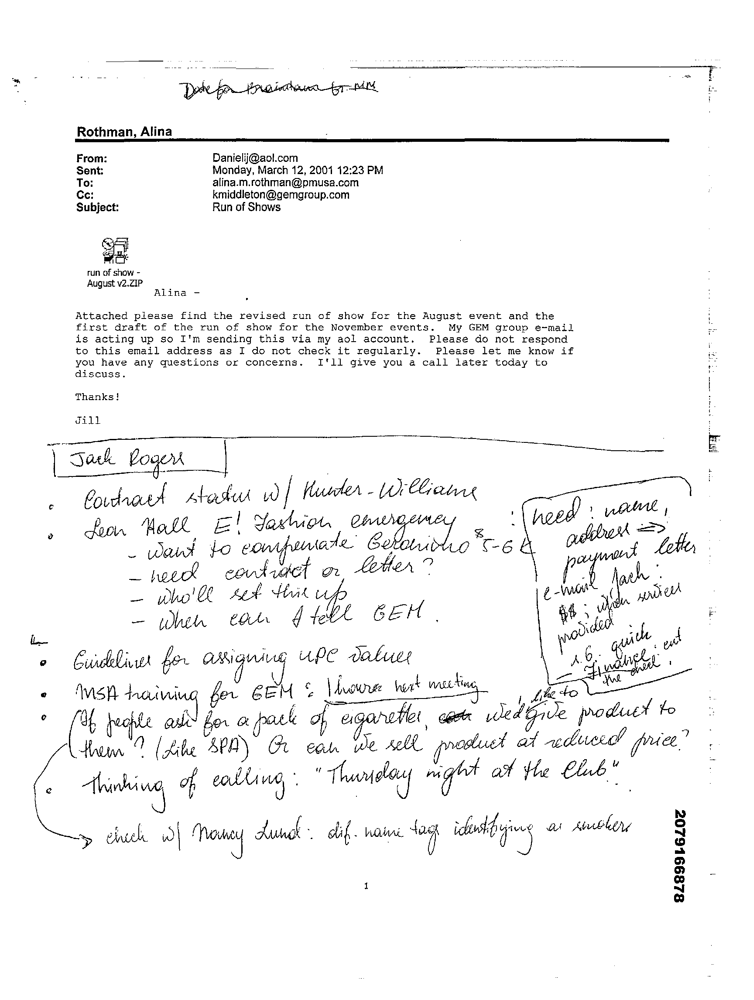 Date for Braindown for MM
Rothman, Alina
From: Danielij@aol.com
Sent: Monday, March 12, 2001 12:23 PM
To: alina.m.rothman@pmusa.com
Cc: kmiddleton@gemgroup.com
Subject: Run of Shows
run of show -
August v2.ZIP
Alina -
Attached please find the revised run of show for the August event and the
first draft of the run of show for the November events. My GEM group e-mail
is acting up so I'm sending this via my aol account. Please do not respond
to this email address as I do not check it regularly. Please let me know if
you have any questions or concerns. I'll give you a call later today to
discuss.
Thanks!
Jill
Jack Rogers
Contract status w/ Hunter-Williams
Leon Hall E! Fashion emergency
- want to compensate Geronimo $5-6K
- need contract or letter?
- who'll set this up
- when can I tell GEM.
: need: name,
address ⇒
payment letter
e-mail Jack:
$$; upon services
provided
- quick
Finance: cut
the check
Guidelines for assigning UPC values
MSA training for GEM: 1 hour @ next meeting
If people ask for a pack of cigarettes, we'd like to give product to
them? (Like SPA) Or can we sell product at reduced price?
Thinking of calling: "Thursday night at the Club"
check w/ Nancy Lund: dif. name tags identifying as smokers
1
2079166878